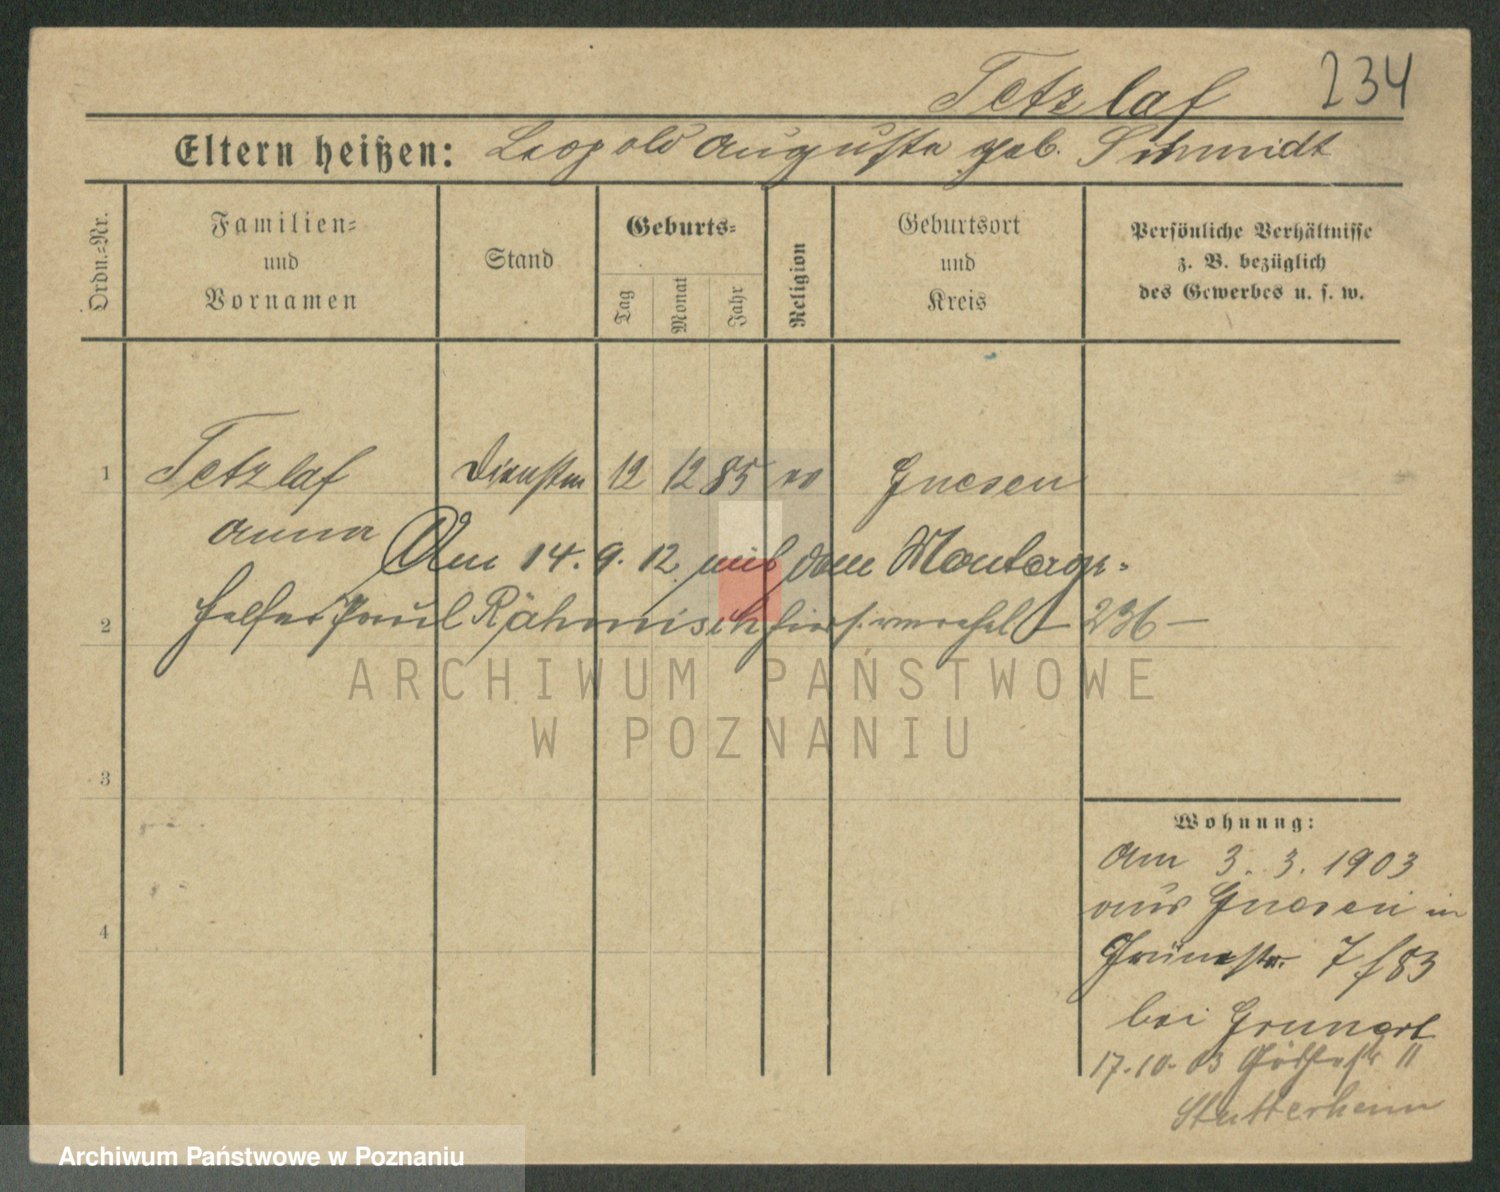 Tetzlaf 234
Eltern heißen: Leopold Auguste geb. Schmidt
Ordn.-Nr.
Familien-
und
Vornamen
Stand
Geburts-
Tag
Monat
Jahr
Religion
Geburtsort
und
Kreis
Persönliche Verhältnisse
z. B. bezüglich
des Gewerbes u. s. w.
1 Tetzlaf Dienstm 12 12 85 ev Gnesen
Anna Am 14.9.12 mit dem Montage-
2 helfer Paul Rähmisch hiers. verehel. - 236 -
3
4
Wohnung:
Am 3. 3. 1903
aus Gnesen in
Grünestr. 7 f 83
bei Grunert
17.10.03 11
Stutterheim
ARCHIWUM PAŃSTWOWE
W POZNANIU
Archiwum Państwowe w Poznaniu